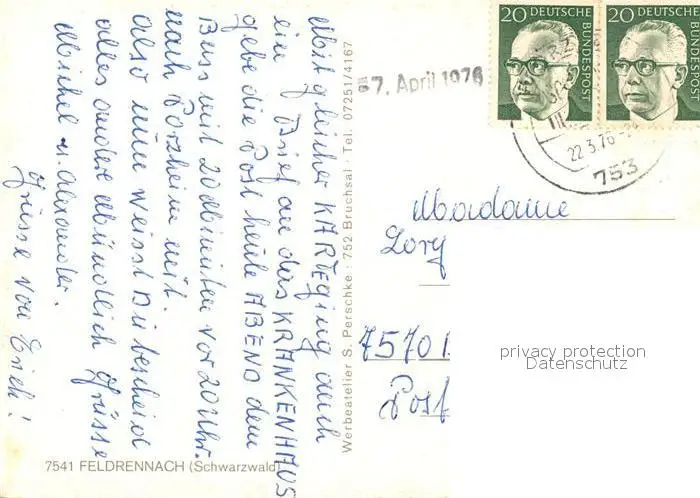 Mit gleicher KARTE ging auch
ein Brief an das KRANKENHAUS
gebe die Post heute ABEND dem
Buss mit 20 Minuten vor 20 Uhr.
nach Pforzheim mit.
also nun weisst Du bescheid
alles andere Mündlich Grüsse
Michel u. Alexander.
Grüsse von Erich!
7541 FELDRENNACH (Schwarzwald)
Werbeatelier S. Perschke · 752 Bruchsal · Tel. 07251/4167
7. April 1976
20 DEUTSCHE BUNDESPOST
20 DEUTSCHE BUNDESPOST
22.3.76
753
Madame
Lory
75701
Post
privacy protection
Datenschutz